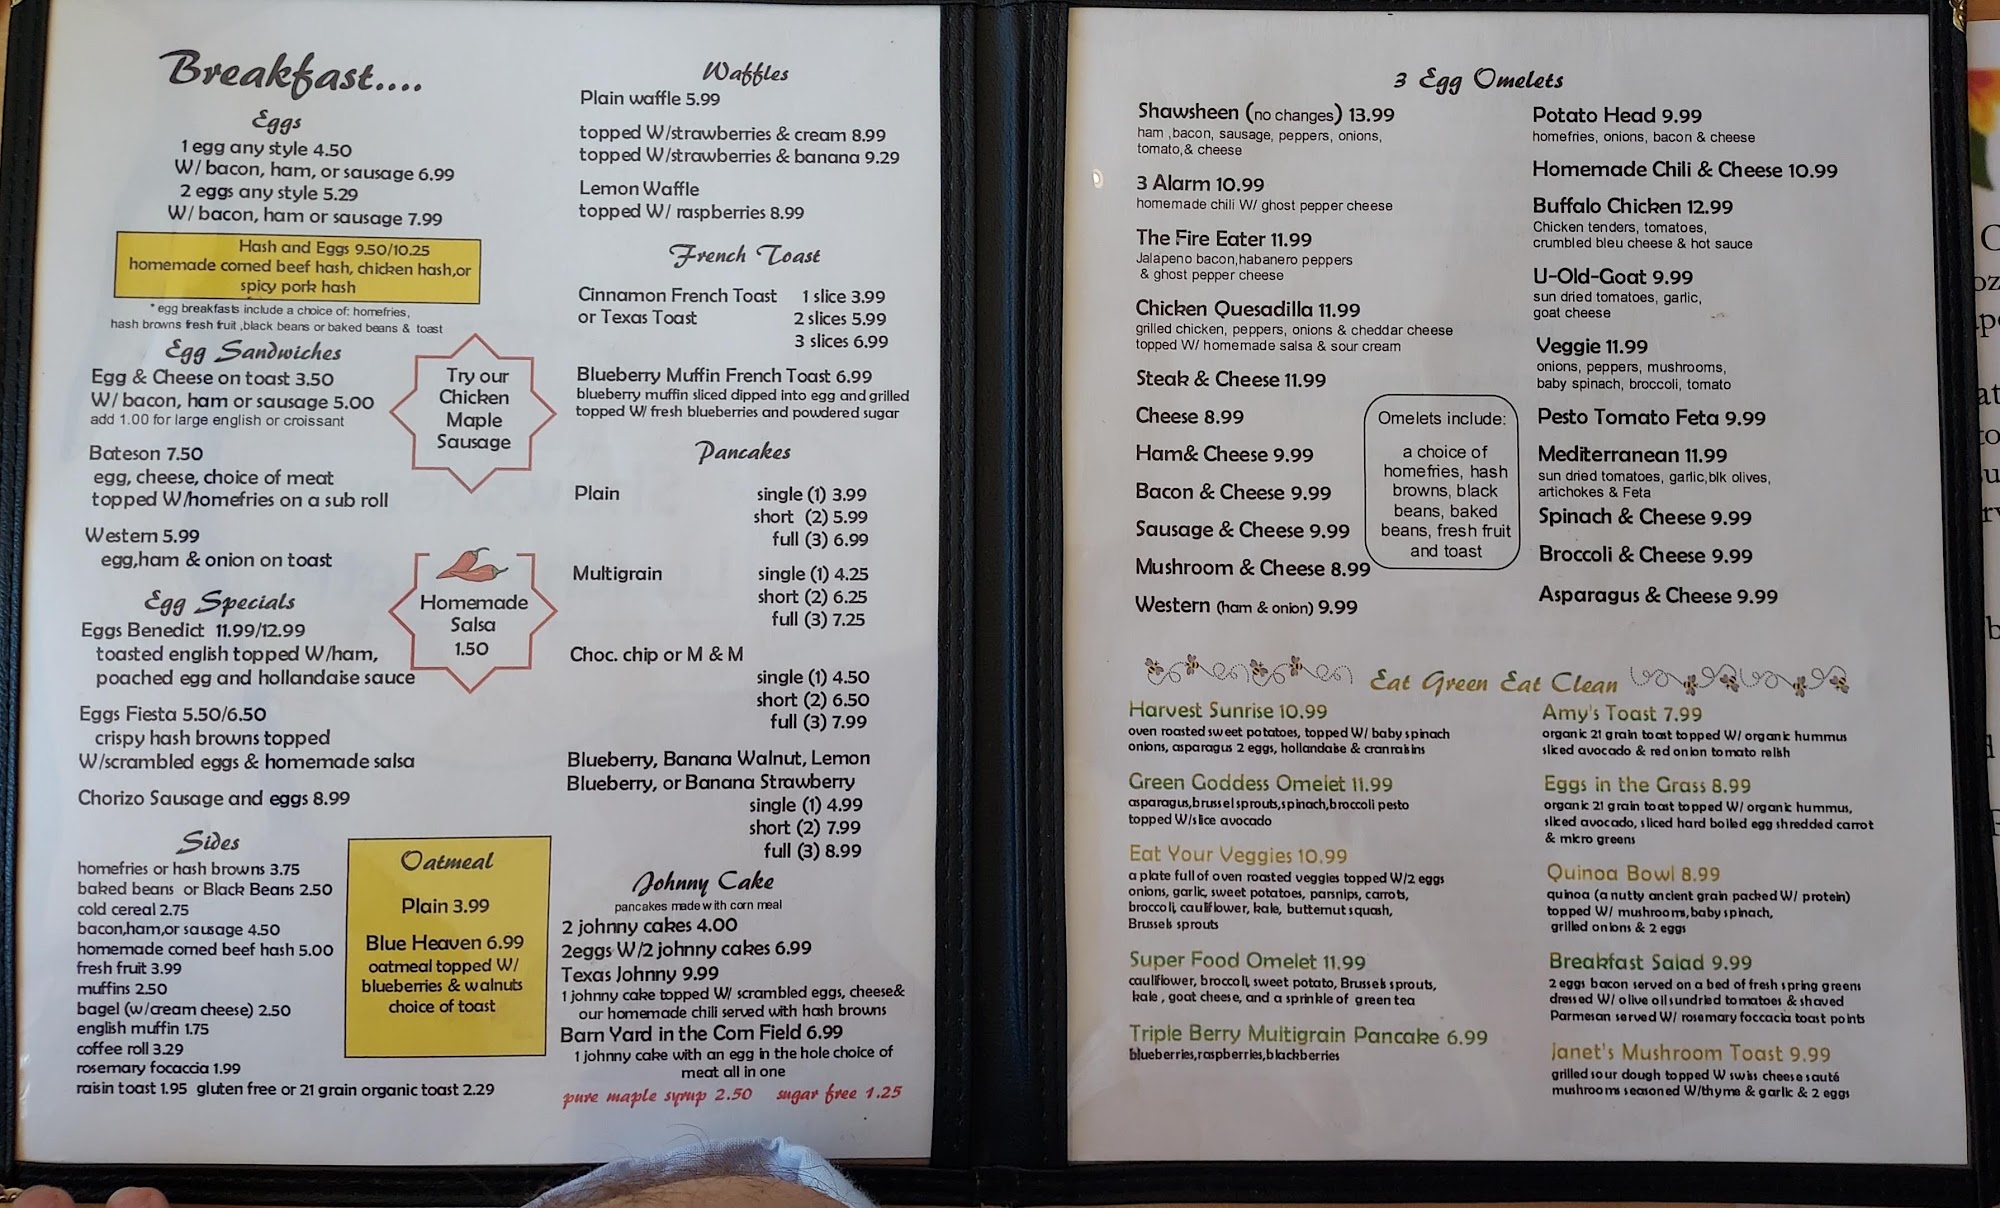 Breakfast....
Eggs
1 egg any style 4.50
W/ bacon, ham, or sausage 6.99
2 eggs any style 5.29
W/ bacon, ham or sausage 7.99
Hash and Eggs 9.50/10.25
homemade corned beef hash, chicken hash,or
spicy pork hash
* egg breakfasts include a choice of: homefries,
hash browns fresh fruit ,black beans or baked beans & toast
Egg Sandwiches
Egg & Cheese on toast 3.50
W/ bacon, ham or sausage 5.00
add 1.00 for large english or croissant
Bateson 7.50
egg, cheese, choice of meat
topped W/homefries on a sub roll
Western 5.99
egg,ham & onion on toast
Try our
Chicken
Maple
Sausage
Homemade
Salsa
1.50
Egg Specials
Eggs Benedict 11.99/12.99
toasted english topped W/ham,
poached egg and hollandaise sauce
Eggs Fiesta 5.50/6.50
crispy hash browns topped
W/scrambled eggs & homemade salsa
Chorizo Sausage and eggs 8.99
Sides
homefries or hash browns 3.75
baked beans or Black Beans 2.50
cold cereal 2.75
bacon,ham,or sausage 4.50
homemade corned beef hash 5.00
fresh fruit 3.99
muffins 2.50
bagel (w/cream cheese) 2.50
english muffin 1.75
coffee roll 3.29
rosemary focaccia 1.99
raisin toast 1.95 gluten free or 21 grain organic toast 2.29
Oatmeal
Plain 3.99
Blue Heaven 6.99
oatmeal topped W/
blueberries & walnuts
choice of toast
Waffles
Plain waffle 5.99
topped W/strawberries & cream 8.99
topped W/strawberries & banana 9.29
Lemon Waffle
topped W/ raspberries 8.99
French Toast
Cinnamon French Toast 1 slice 3.99
or Texas Toast 2 slices 5.99
3 slices 6.99
Blueberry Muffin French Toast 6.99
blueberry muffin sliced dipped into egg and grilled
topped W/ fresh blueberries and powdered sugar
Pancakes
Plain single (1) 3.99
short (2) 5.99
full (3) 6.99
Multigrain single (1) 4.25
short (2) 6.25
full (3) 7.25
Choc. chip or M & M
single (1) 4.50
short (2) 6.50
full (3) 7.99
Blueberry, Banana Walnut, Lemon
Blueberry, or Banana Strawberry
single (1) 4.99
short (2) 7.99
full (3) 8.99
Johnny Cake
pancakes made with corn meal
2 johnny cakes 4.00
2eggs W/2 johnny cakes 6.99
Texas Johnny 9.99
1 johnny cake topped W/ scrambled eggs, cheese&
our homemade chili served with hash browns
Barn Yard in the Corn Field 6.99
1 johnny cake with an egg in the hole choice of
meat all in one
pure maple syrup 2.50 sugar free 1.25
3 Egg Omelets
Shawsheen (no changes) 13.99
ham ,bacon, sausage, peppers, onions,
tomato,& cheese
3 Alarm 10.99
homemade chili W/ ghost pepper cheese
The Fire Eater 11.99
Jalapeno bacon,habanero peppers
& ghost pepper cheese
Chicken Quesadilla 11.99
grilled chicken, peppers, onions & cheddar cheese
topped W/ homemade salsa & sour cream
Steak & Cheese 11.99
Cheese 8.99
Ham& Cheese 9.99
Bacon & Cheese 9.99
Sausage & Cheese 9.99
Mushroom & Cheese 8.99
Western (ham & onion) 9.99
Omelets include:
a choice of
homefries, hash
browns, black
beans, baked
beans, fresh fruit
and toast
Potato Head 9.99
homefries, onions, bacon & cheese
Homemade Chili & Cheese 10.99
Buffalo Chicken 12.99
Chicken tenders, tomatoes,
crumbled bleu cheese & hot sauce
U-Old-Goat 9.99
sun dried tomatoes, garlic,
goat cheese
Veggie 11.99
onions, peppers, mushrooms,
baby spinach, broccoli, tomato
Pesto Tomato Feta 9.99
Mediterranean 11.99
sun dried tomatoes, garlic,blk olives,
artichokes & Feta
Spinach & Cheese 9.99
Broccoli & Cheese 9.99
Asparagus & Cheese 9.99
Eat Green Eat Clean
Harvest Sunrise 10.99
oven roasted sweet potatoes, topped W/ baby spinach
onions, asparagus 2 eggs, hollandaise & cranraisins
Green Goddess Omelet 11.99
asparagus,brussel sprouts,spinach,broccoli pesto
topped W/slice avocado
Eat Your Veggies 10.99
a plate full of oven roasted veggies topped W/2 eggs
onions, garlic, sweet potatoes, parsnips, carrots,
broccoli, cauliflower, kale, butternut squash,
Brussels sprouts
Super Food Omelet 11.99
cauliflower, broccoli, sweet potato, Brussels sprouts,
kale , goat cheese, and a sprinkle of green tea
Triple Berry Multigrain Pancake 6.99
blueberries,raspberries,blackberries
Amy's Toast 7.99
organic 21 grain toast topped W/ organic hummus
sliced avocado & red onion tomato relish
Eggs in the Grass 8.99
organic 21 grain toast topped W/ organic hummus,
sliced avocado, sliced hard boiled egg shredded carrot
& micro greens
Quinoa Bowl 8.99
quinoa (a nutty ancient grain packed W/ protein)
topped W/ mushrooms,baby spinach,
grilled onions & 2 eggs
Breakfast Salad 9.99
2 eggs bacon served on a bed of fresh spring greens
dressed W/ olive oil sundried tomatoes & shaved
Parmesan served W/ rosemary foccacia toast points
Janet's Mushroom Toast 9.99
grilled sour dough topped W swiss cheese sauté
mushrooms seasoned W/thyme & garlic & 2 eggs